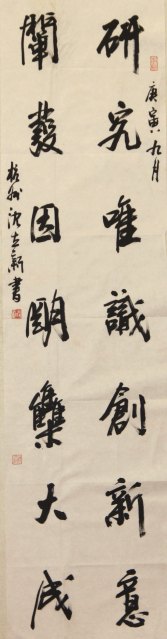 庚寅九月
研究唯識創新意
闡發因明集大成
杭州沈立新書